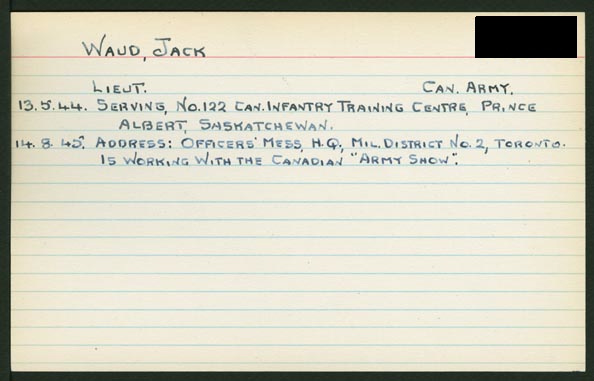 WAUD, JACK
LIEUT. CAN. ARMY.
13.5.44. SERVING, No.122 CAN. INFANTRY TRAINING CENTRE, PRINCE
ALBERT, SASKATCHEWAN.
14.8.45. ADDRESS: OFFICERS' MESS, H.Q., MIL. DISTRICT No.2, TORONTO.
IS WORKING WITH THE CANADIAN "ARMY SHOW".